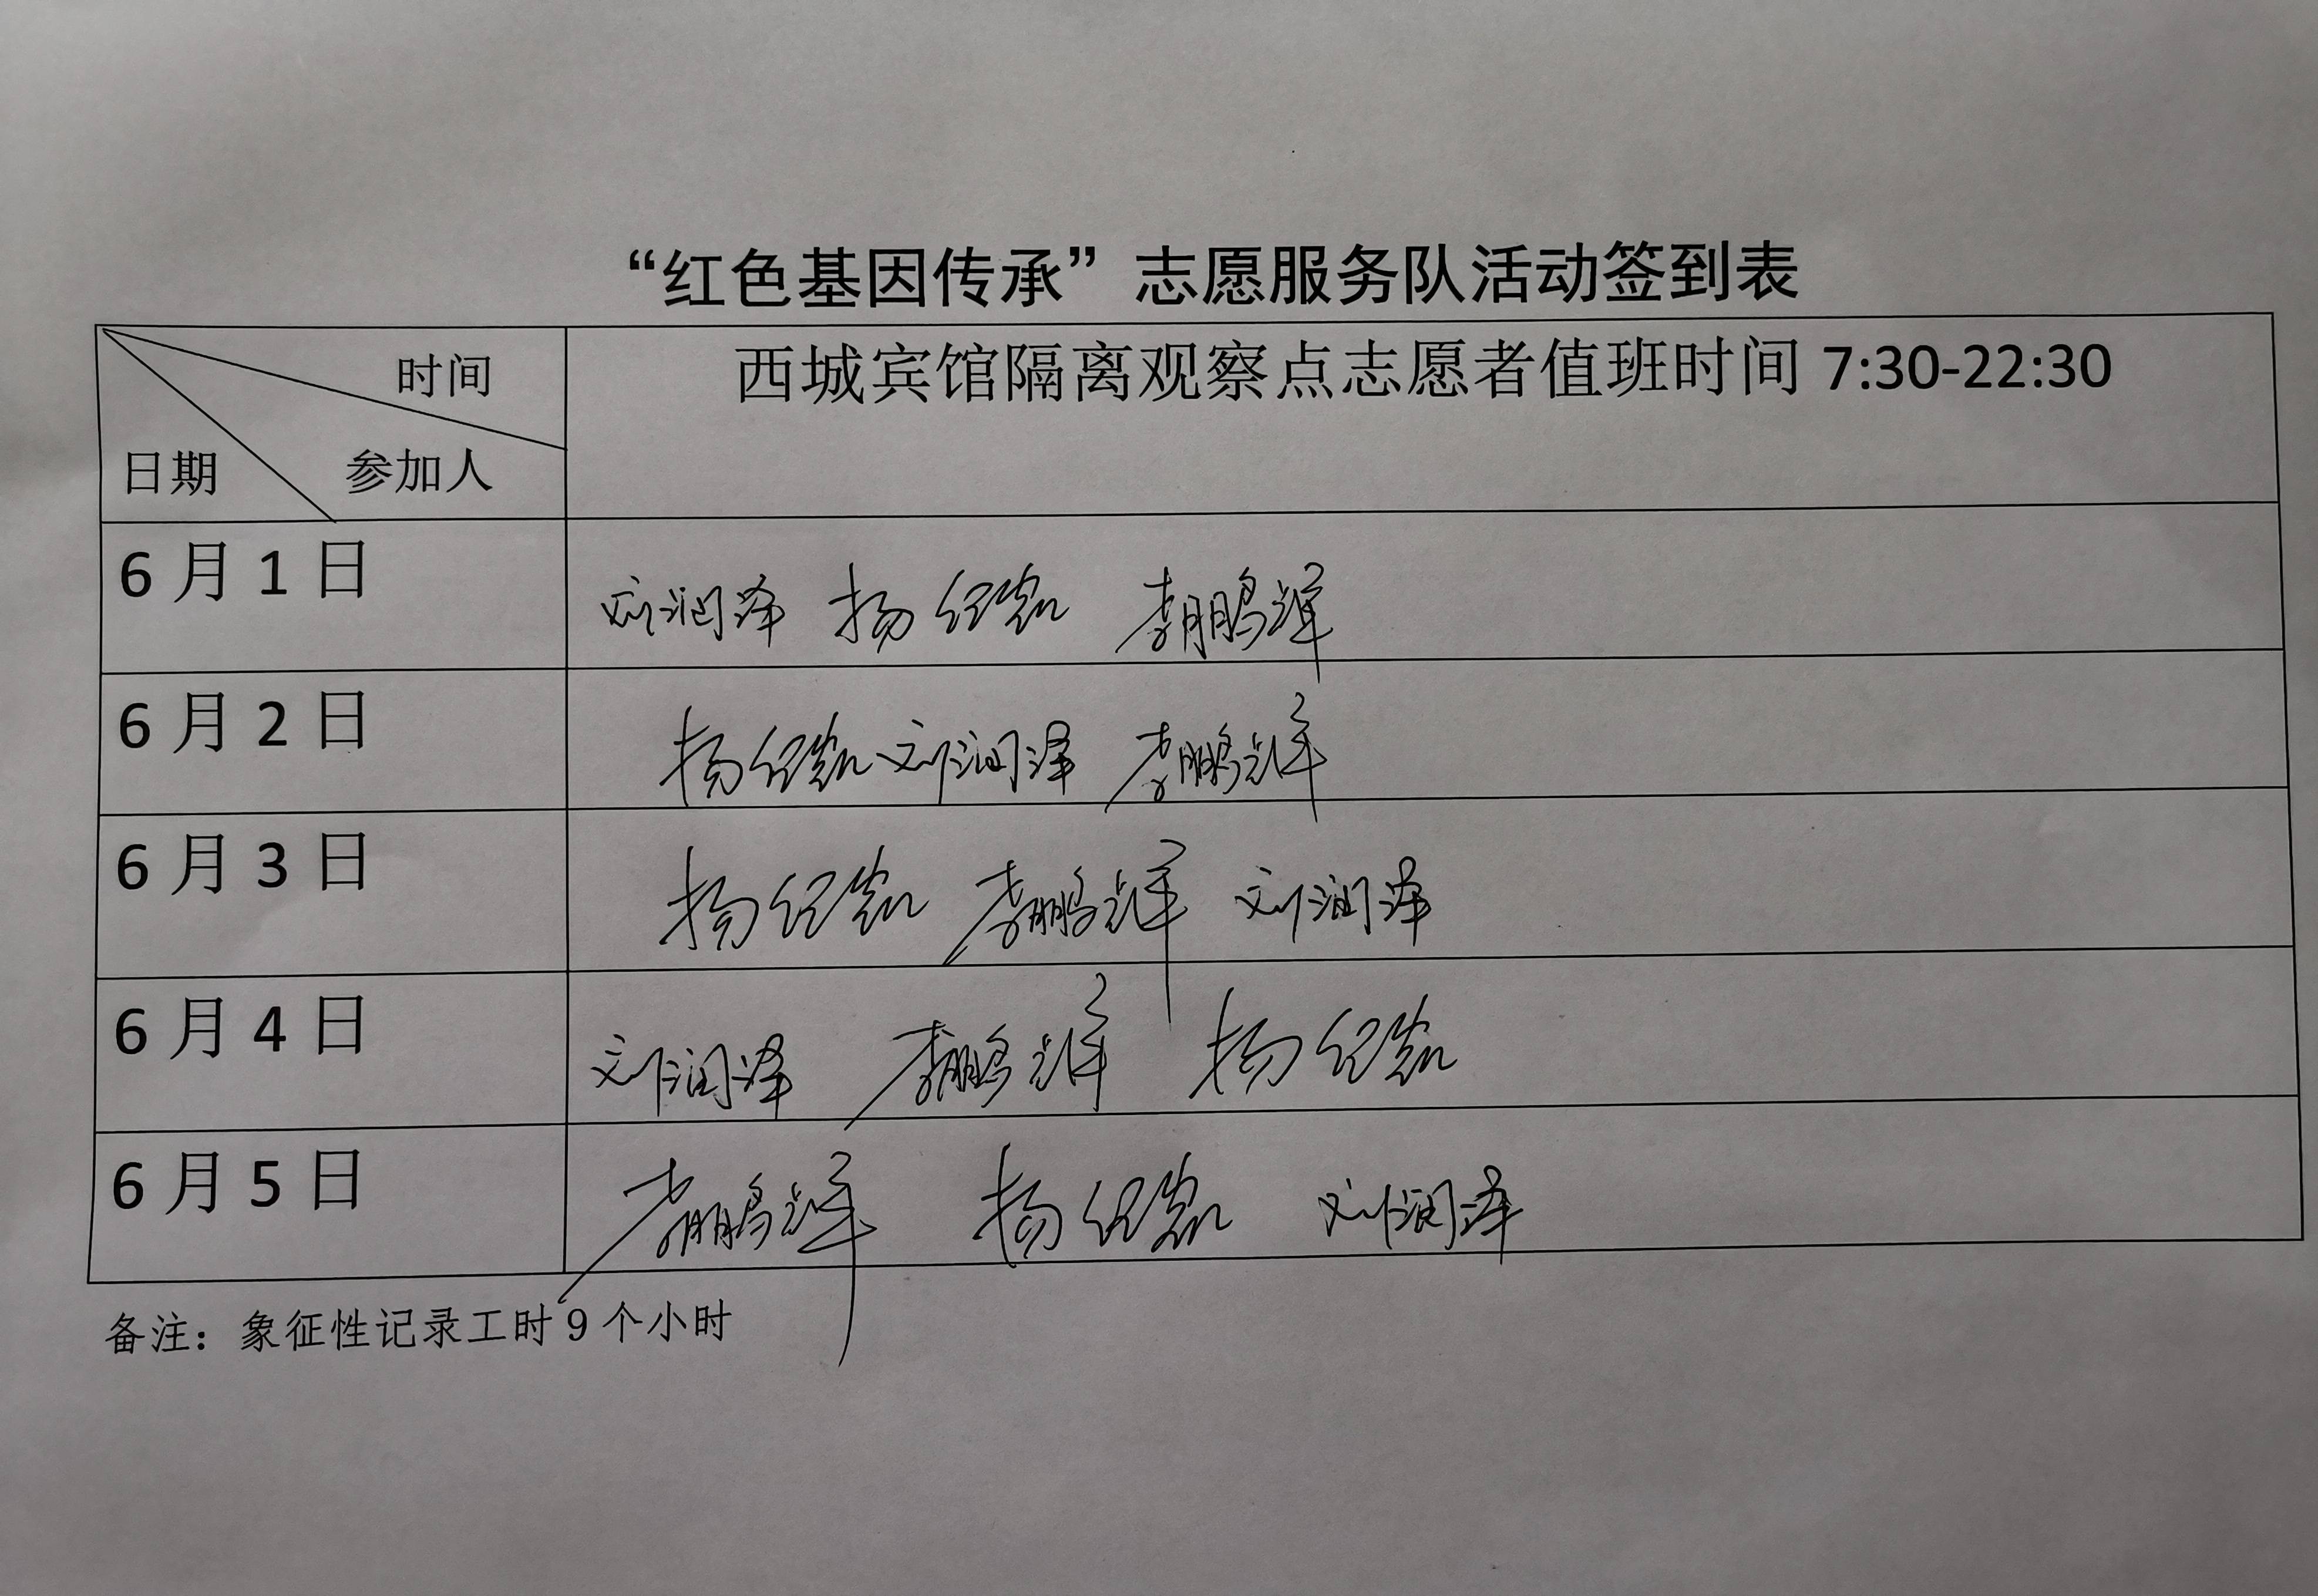 “红色基因传承”志愿服务队活动签到表
时间
西城宾馆隔离观察点志愿者值班时间 7:30-22:30
日期
参加人
6 月 1 日
刘润泽 杨纪凯 李鹏辉
6 月 2 日
杨纪凯 刘润泽 李鹏辉
6 月 3 日
杨纪凯 李鹏辉 刘润泽
6 月 4 日
刘润泽 李鹏辉 杨纪凯
6 月 5 日
李鹏辉 杨纪凯 刘润泽
备注：象征性记录工时 9 个小时